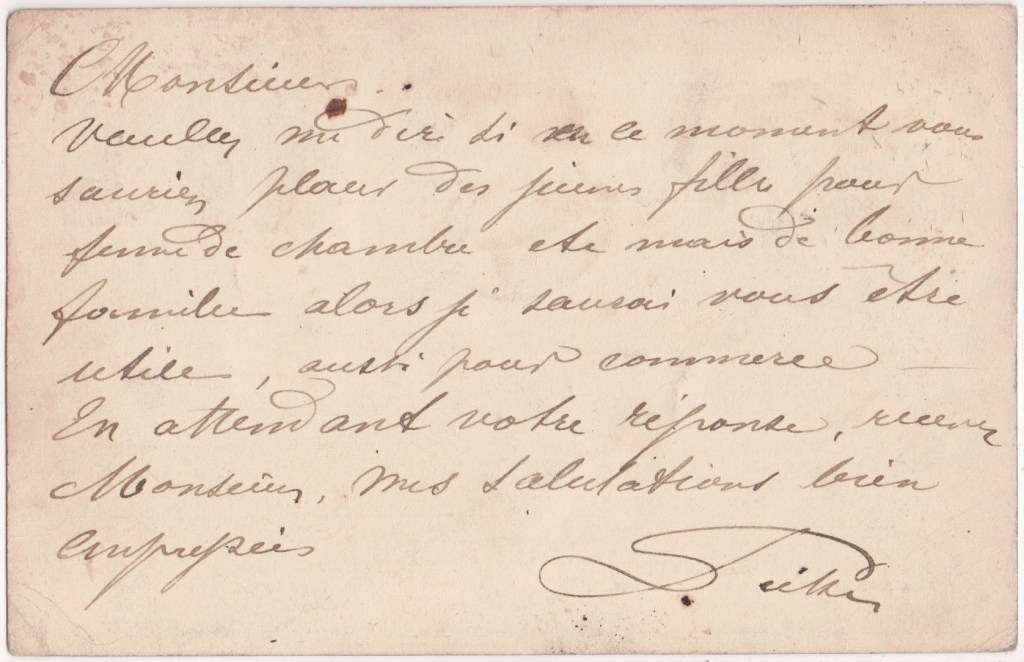 Monsieur.
Veuillez me dire si en ce moment vous
sauriez placer des jeunes filles pour
femme de chambre etc mais de bonne
famille alors je saurai vous être
utile, aussi pour commerce —
En attendant votre réponse, recevez
Monsieur, mes salutations bien
empressées